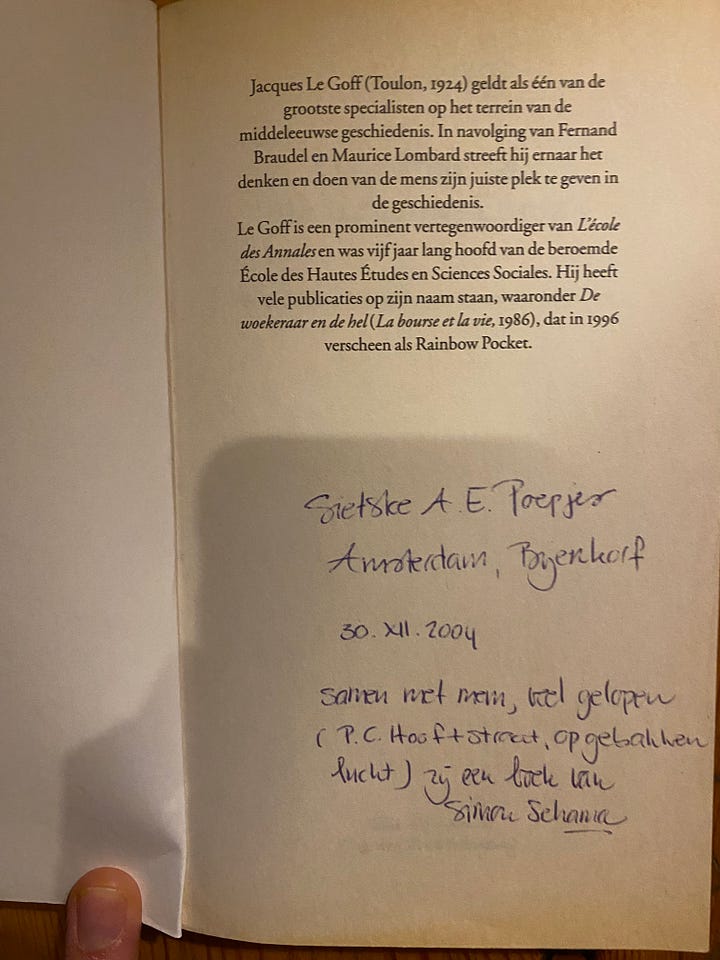 Jacques Le Goff (Toulon, 1924) geldt als één van de
grootste specialisten op het terrein van de
middeleeuwse geschiedenis. In navolging van Fernand
Braudel en Maurice Lombard streeft hij ernaar het
denken en doen van de mens zijn juiste plek te geven in
de geschiedenis.
Le Goff is een prominent vertegenwoordiger van L'école
des Annales en was vijf jaar lang hoofd van de beroemde
École des Hautes Études en Sciences Sociales. Hij heeft
vele publicaties op zijn naam staan, waaronder De
woekeraar en de hel (La bourse et la vie, 1986), dat in 1996
verscheen als Rainbow Pocket.
Sietske A. E. Poepjes
Amsterdam, Bijenkorf
30. XII. 2004
samen met mem, veel gelopen
(P.C. Hooftstraat, opgebakken
lucht) zij een boek van
Simon Schama